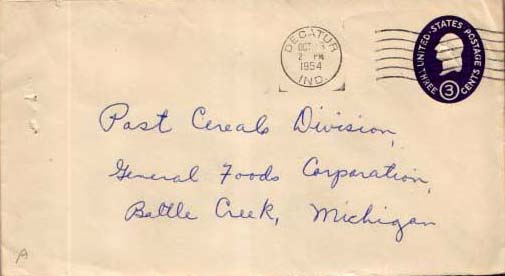 DECATUR
OCT
2 PM
1954
IND.
UNITED·STATES POSTAGE
THREE 3 CENTS
Post Cereals Division,
General Foods Corporation,
Battle Creek, Michigan
A